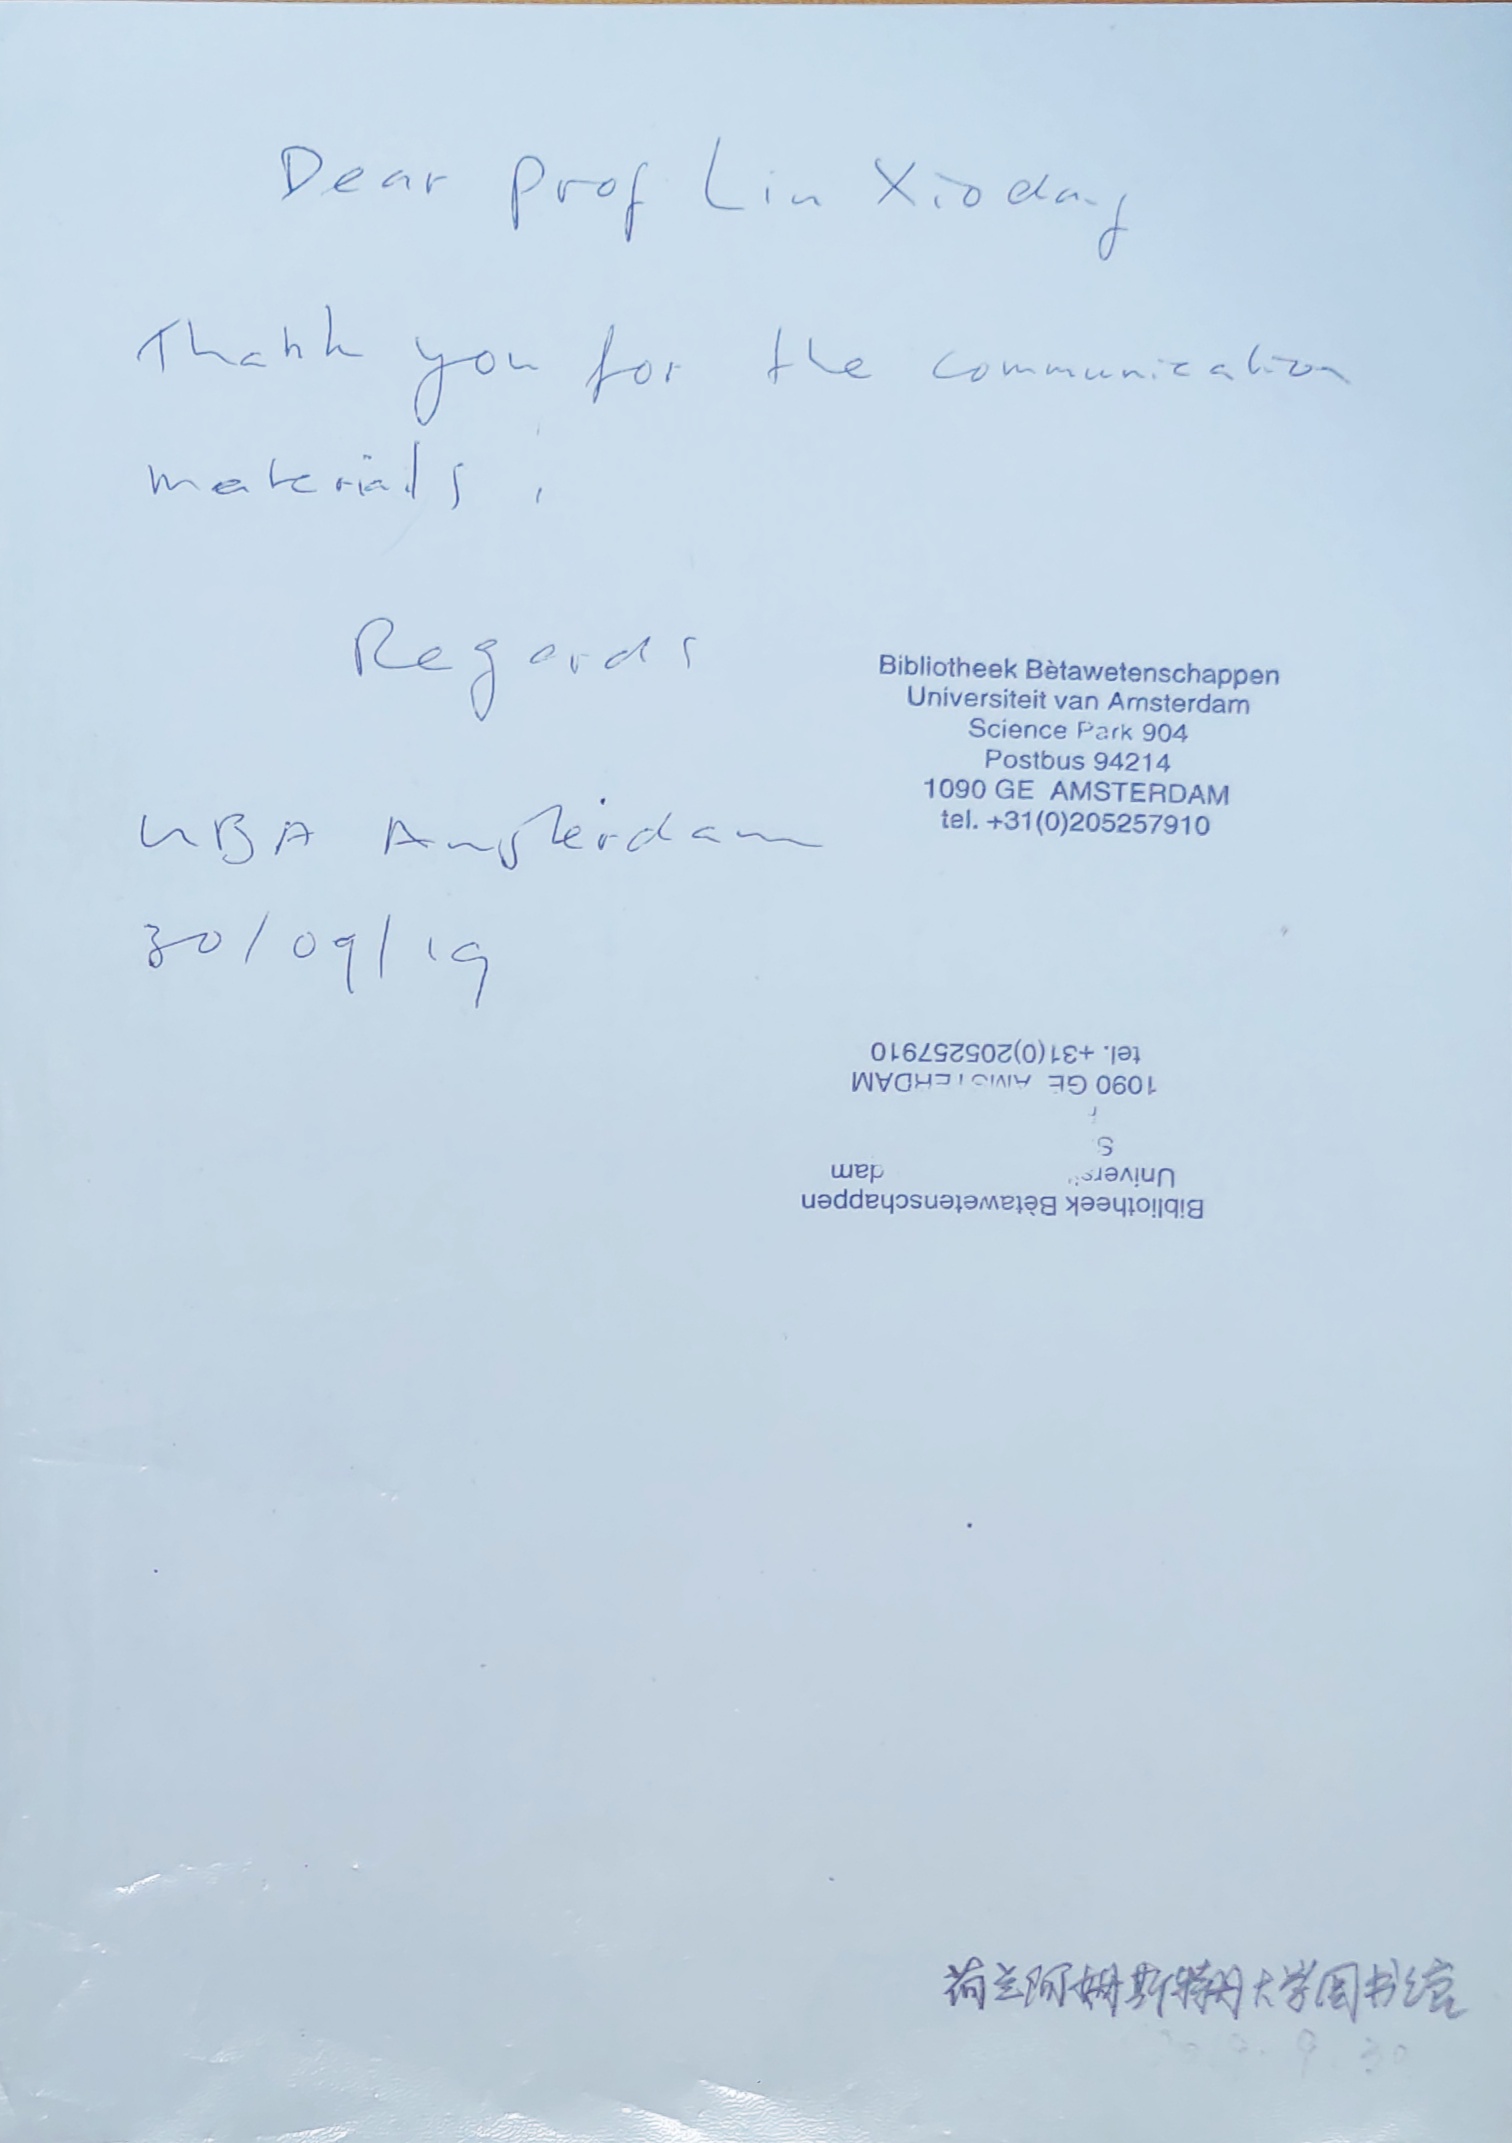 Dear Prof Lin Xiodang
Thank you for the communication
materials.
Regards
Bibliotheek Bètawetenschappen
Universiteit van Amsterdam
Science Park 904
Postbus 94214
1090 GE AMSTERDAM
tel. +31(0)205257910
UBA Amsterdam
30/09/19
Bibliotheek Bètawetenschappen
Univers dam
S
1090 GE AMSTERDAM
tel. +31(0)205257910
荷兰阿姆斯特丹大学图书馆
9.30